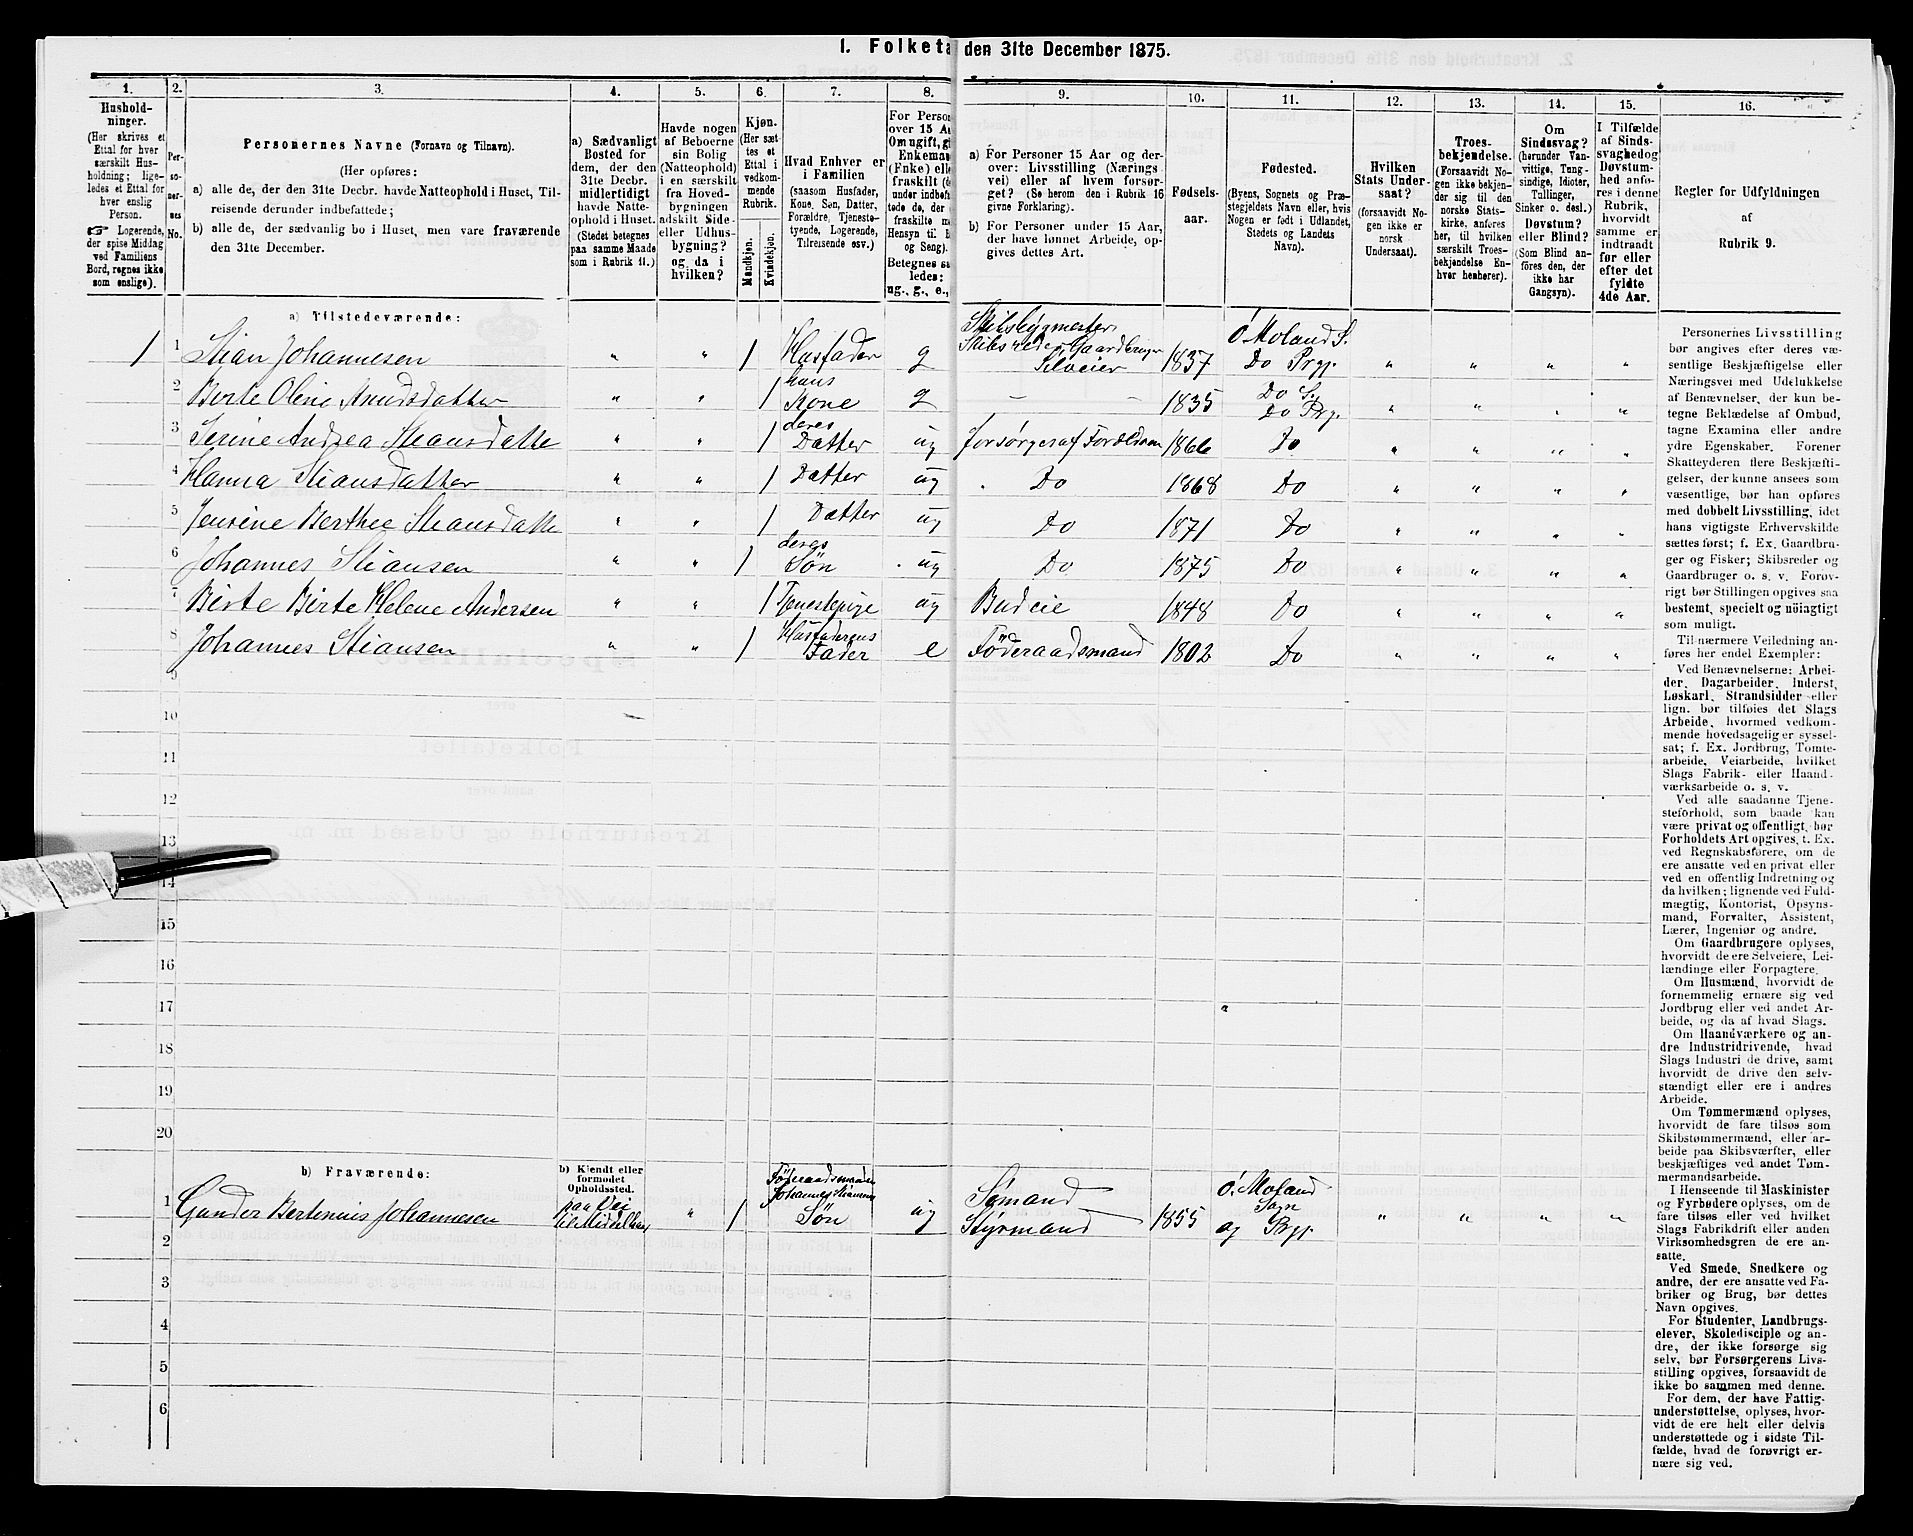 I. Folketa den 31te December 1875.
1. 2. 3. 4. 5. 6. 7. 8. 9. 10. 11. 12. 13. 14. 15. 16.
Hushold-
ninger.
(Her skrives et
Ettal for hver
særskilt Hus-
holdning; lige-
ledes et Ettal for
hver enslig
Person.
☞ Logerende,
der spise Middag
ved Familiens
Bord, regnes ikke
som enslige).
Per-
so-
ner-
nes
No.
Personernes Navne (Fornavn og Tilnavn).
(Her opføres:
a) alle de, der den 31te Decbr. havde Natteophold i Huset, Til-
reisende derunder indbefattede;
b) alle de, der sædvanlig bo i Huset, men vare fraværende
den 31te December.
a) Sædvanligt
Bosted for
dem, der den
31te Decbr.
midlertidigt
havde Natte-
ophold i Huset.
(Stedet betegnes
paa samme Maade
som i Rubrik 11.)
Havde nogen
af Beboerne
sin Bolig
(Natteophold)
i en særskilt
fra Hoved-
bygningen
adskilt Side-
eller Udhus-
bygning?
og da i
hvilken?
Kjøn.
(Her sæt-
tes et
Ettal i
vedkom-
mende
Rubrik.
Mandkjøn.
Kvindekjøn.
Hvad Enhver er
i Familien
(saasom Husfader,
Kone, Søn, Datter,
Forældre, Tjeneste-
tyende, Logerende,
Tilreisende osv.)
For Person
over 15 Aa
Om ugift, gi
Enkema
(Fnke) el
fraskilt (b
under indbef
tede de, der
fraskilte m
Hensyn til B
og Seng).
Betegnes sa
ledes:
ug., g., e.,
a) For Personer 15 Aar og der-
over: Livsstilling (Nærings
vei) eller af hvem forsør-
get? (Se herom den i Rubrik 16
givne Forklaring).
b) For Personer under 15 Aar,
der have lønnet Arbeide, op-
gives dettes Art.
Fødsels-
aar.
Fødested.
(Byens, Sognets og Præ-
stegjeldets Navn eller, hvis
Nogen er født i Udlandet,
Stedets og Landets
Navn).
Hvilken
Stats Under-
saat?
(forsaavidt No-
gen ikke er
norsk
Undersaat).
Troes-
bekjendelse.
(Forsaavidt No-
gen ikke bekjen-
der sig til den
norske Stats-
kirke, anføres
her, til hvilken
særskilt Troes-
bekjendelse En-
hver henhører).
Om
Sindssvag?
(herunder Van-
vittige, Tung-
sindige, Idioter,
Tullinger,
Sinker o. desl.)
Døvstum?
eller Blind?
(Som Blind an-
føres den, der
ikke har
Gangsyn).
I Tilfælde
af Sinds-
svaghed og
Døvstum-
hed anfø-
res i denne
Rubrik,
hvorvidt
samme er
indtraadt
før eller
efter det
fyldte
4de Aar.
Regler for Udfyldningen
af
Rubrik 9.
a) Tilstedeværende:
1 1 Stian Johannesen " " 1 Husfader g Skibsbygmester, Skibsreder, Gaardbruger Selveier 1837 Ö. Moland S. Do Prgj. " " " "
2 Berte Oline Amundsdatter " " 1 hans Kone g – – 1835 Do S. Do Prgj. " " " "
3 Serine Andrea Stiansdatte " " 1 deres Datter ug forsørges af Forældrene 1866 Do " " " "
4 Hanna Stiansdatter " " 1 Datter ug Do 1868 Do " " " "
5 Jensine Berthee Stiansdatte " " 1 Datter ug Do 1871 Do " " " "
6 Johannes Stiansen " " 1 deres Søn ug Do 1875 Do " " " "
7 Birte Birte Helene Andersen " " 1 Tjenestepige ug Budeie 1848 Do " " " "
8 Johannes Stiansen " " 1 Husfaderens Fader e Föderaadsmand 1802 Do " " " "
9
10
11
12
13
14
15
16
17
18
19
20
b) Fraværende:
b) Kjendt eller
formodet
Opholdssted.
1 Gunder Bertinius Johannesen paa Vei til " 1 Föderaadsmanden Johannes Stiansens Søn ug Sømand Styrmand 1855 Ö. Moland Sogn og Prgj. " " " "
2
3
4
5
6
Personernes Livsstilling
bør angives efter deres væ-
sentlige Beskjæftigelse eller
Næringsvei med Udelukkelse
af Benævnelser, der kun be-
tegne Beklædelse af Ombud,
tagne Examina eller andre
ydre Egenskaber. Forener
Skatteyderen flere Beskjæfti-
gelser, der kunne ansees som
væsentlige, bør han opføres
med dobbelt Livsstilling, idet
hans vigtigste Erhvervskilde
sættes først; f. Ex. Gaardbru-
ger og Fisker; Skibsreder og
Gaardbruger o. s. v. Forøv-
rigt bør Stillingen opgives saa
bestemt, specielt og nöiagtigt
som muligt.
Til nærmere Veiledning an-
føres her endel Exempler:
Ved Benævnelserne: Arbei-
der, Dagarbeider, Inderst,
Løskarl, Strandsidder eller
lign. bør tilføies det Slags
Arbeide, hvormed vedkom-
mende hovedsagelig er syssel-
sat; f. Ex. Jordbrug, Tomte-
arbeide, Veiarbeide, hvilket
Slags Fabrik- eller Haand-
værksarbeide o. s. v.
Ved alle saadanne Tjene-
steforhold, som baade kan
være privat og offentligt, bør
Forholdets Art opgives, t. Ex.
ved Regnskabsførere, om de
ere ansatte ved en privat eller
ved en offentlig Indretning og
da hvilken; lignende ved Fuld-
mægtig, Kontorist, Opsyns-
mand, Forvalter, Assistent,
Lærer, Ingeniør og andre.
Om Gaardbrugere oplyses,
hvorvidt de ere Selveiere, Lei-
lændinge eller Forpagtere.
Om Husmænd, hvorvidt de
fornemmelig ernære sig ved
Jordbrug eller ved andet Ar-
beide, og da af hvad Slags.
Om Haandværkere og an-
dre Industridrivende, hvad
Slags Industri de drive, samt
hvorvidt de drive den selv-
stændigt eller ere i andres
Arbeide.
Om Tømmermænd oplyses,
hvorvidt de fare tilsøs som
Skibstømmermænd, eller ar-
beide paa Skibsværfter, eller
beskjæftiges ved andet Tøm-
mermandsarbeide.
I Henseende til Maskinister
og Fyrbødere oplyses, om de
fare tilsøs eller ved hvilket
Slags Fabrikdrift eller anden
Virksomhedsgren de ere an-
satte.
Ved Smede, Snedkere og
andre, der ere ansatte ved Fa-
briker og Brug, bør dettes
Navn opgives.
For Studenter, Landbrugs-
elever, Skoledisciple og an-
dre, der ikke forsørge sig
selv, bør Forsørgerens Livs-
stilling opgives, forsaavidt de
ikke bo sammen med denne.
For dem, der have Fattig-
understøttelse, oplyses, hvor-
vidt de ere helt eller delvis
understøttede og i sidste Til-
fælde, hvad de forøvrigt er-
nære sig ved.